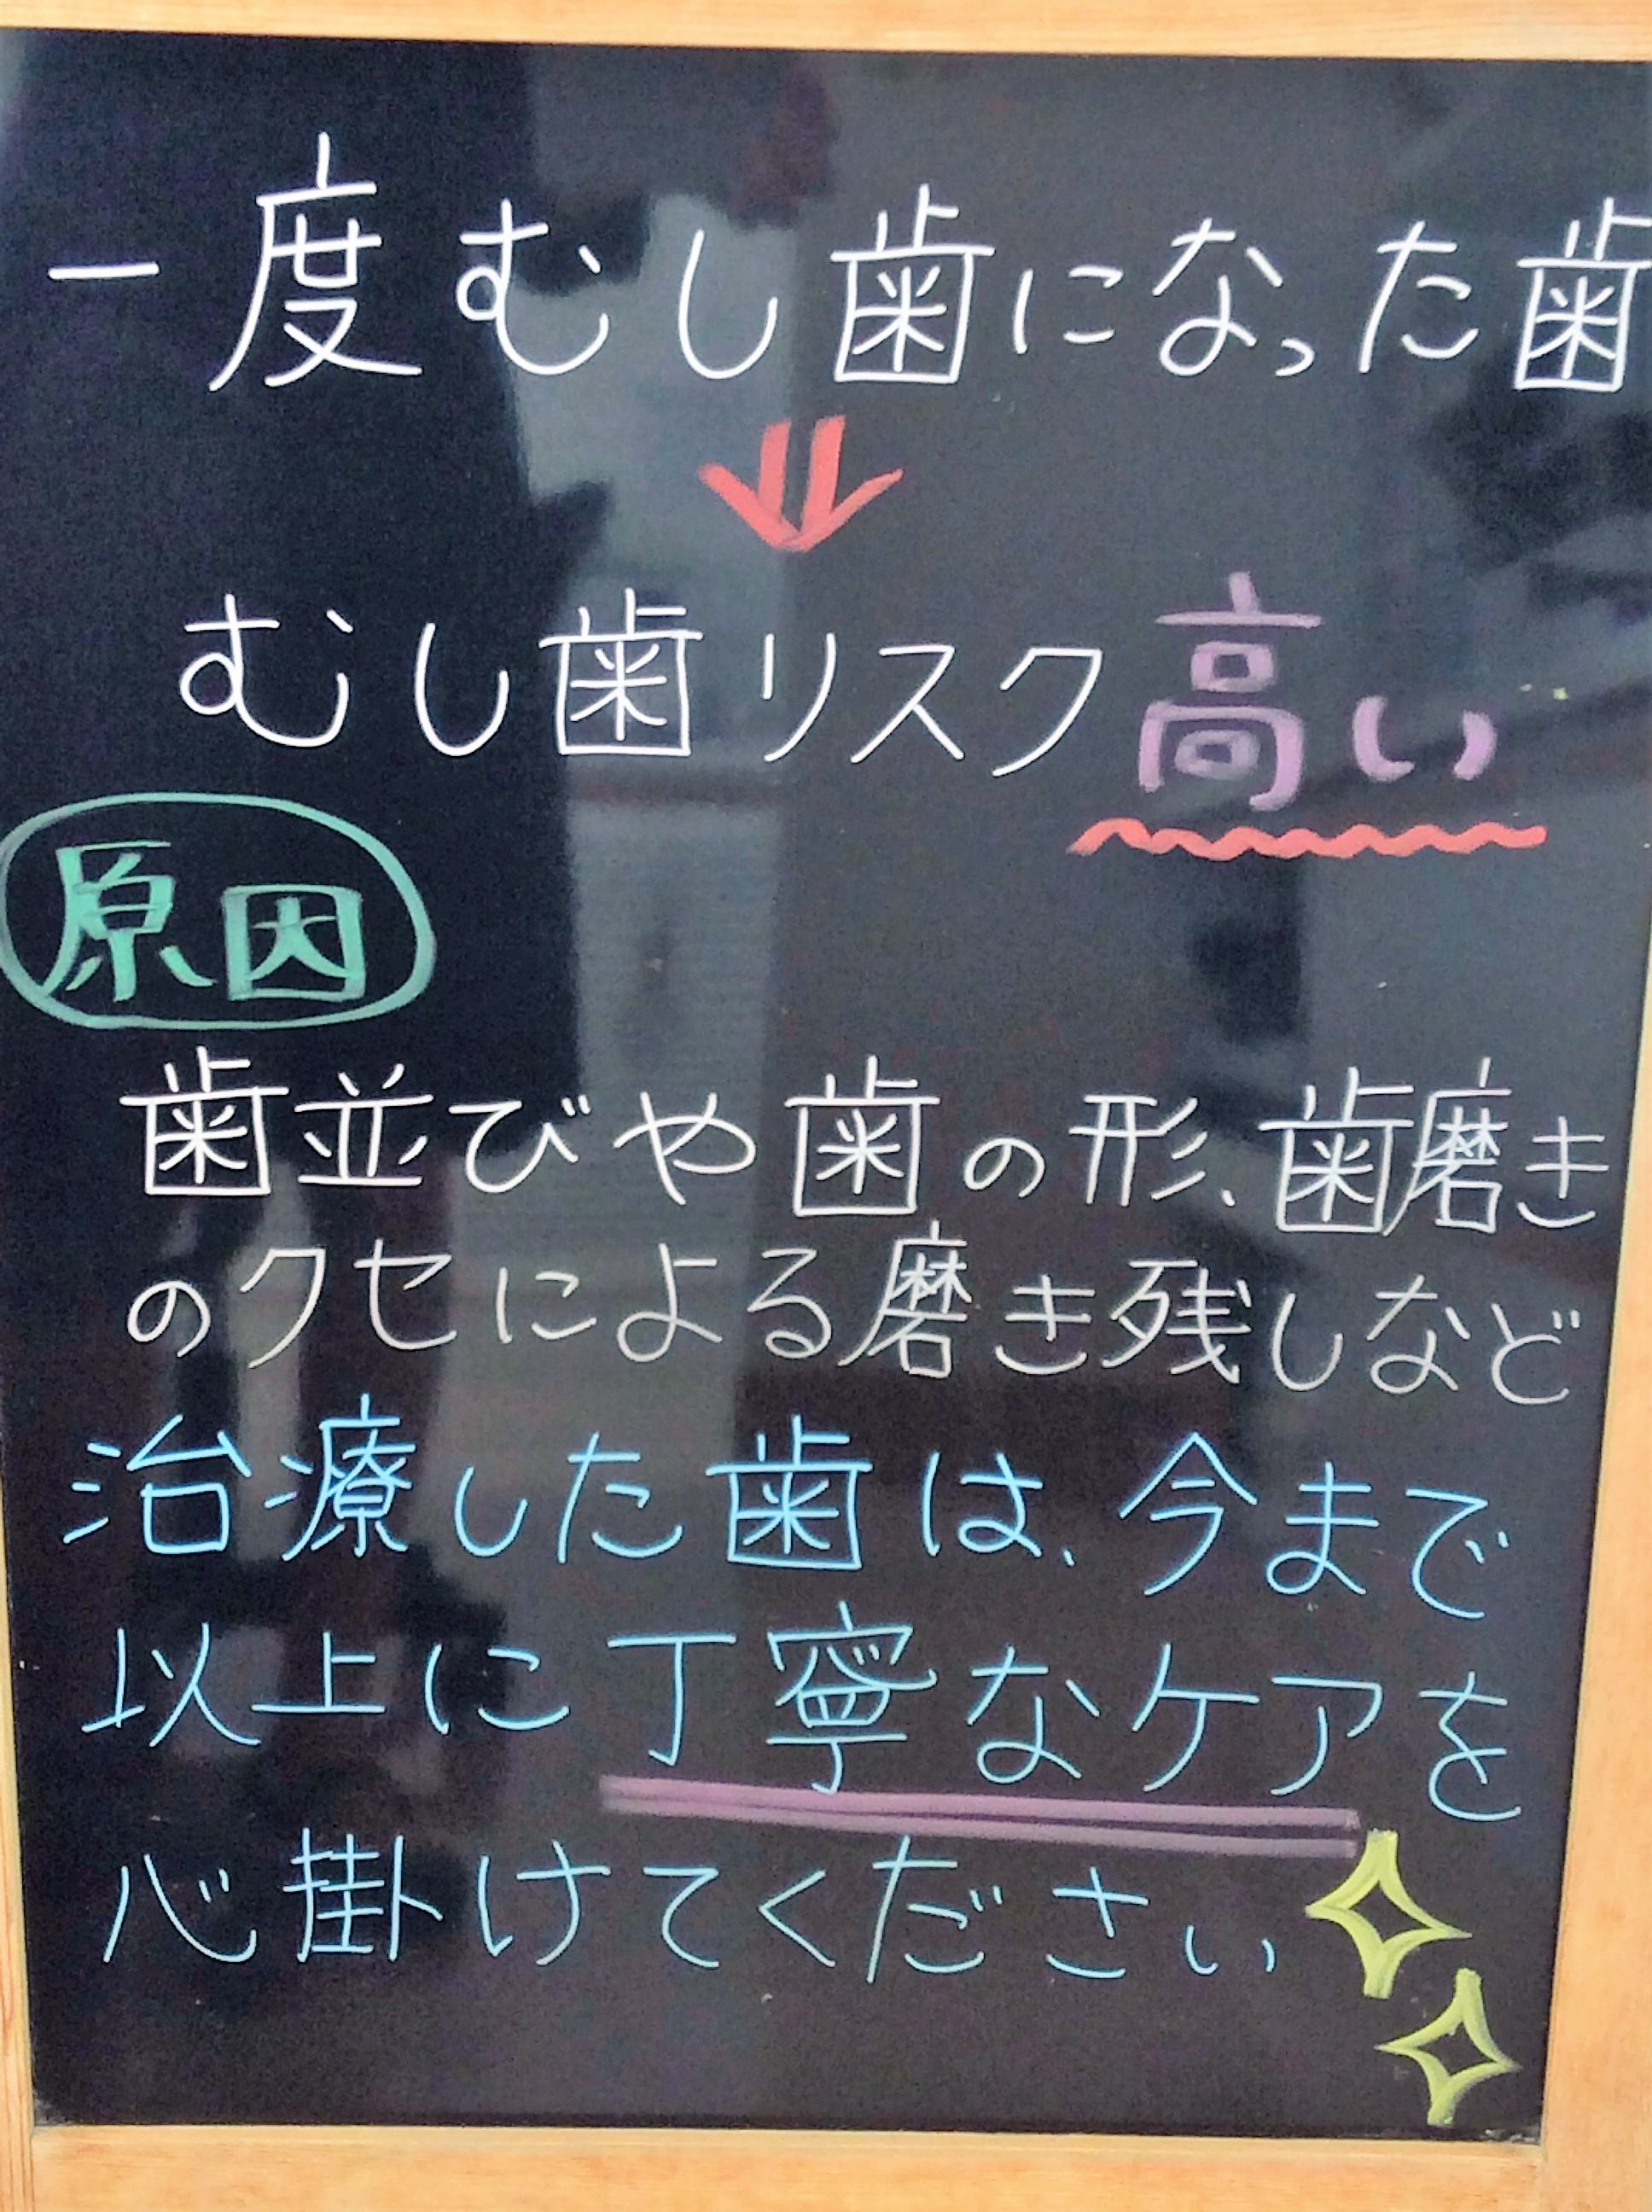 一度むし歯になった歯
むし歯リスク高い
原因
歯並びや歯の形、歯磨き
のクセによる磨き残しなど
治療した歯は、今まで
以上に丁寧なケアを
心掛けてください